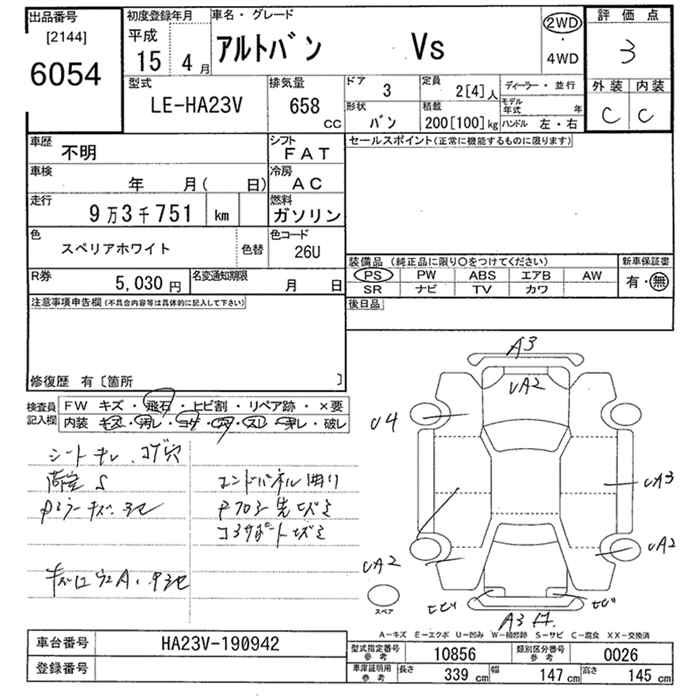 出品番号 初度登録年月 車名・グレード 評価点
[2144] 平成 アルトバン Vs 2WD・4WD 3
6054 15 4月
型式 排気量 ドア 3 定員 2[4]人 ディーラー・並行 外装 内装
LE-HA23V 658cc 形状 バン 積載 200[100]kg モデル年式 年 ハンドル 左・右 C C
車歴 不明 シフト FAT セールスポイント(正常に機能するものに限ります)
車検 年 月( 日) 冷房 AC
走行 9万3千751 km 燃料 ガソリン
色 スペリアホワイト 色替 色コード 26U
装備品(純正品に限り○をつけてください) 新車保証書
PS PW ABS エアB AW 有・無
SR ナビ TV カワ
R券 5,030円 名変通知期限 月 日
後日品
注意事項申告欄(不具合内容等は具体的に記入して下さい)
修復歴 有〔箇所 〕
検査員記入欄 FW キズ・飛石・ヒビ割・リペア跡・×要
内装 キズ・汚レ・コゲ・穴・スレ・キレ・破レ
シートキレ、コゲ穴
荷室 S
エンドパネル曲り
コアサポートヒズミ
A3
UA2
U4
UA3
UA2
UA2
ヒビ ヒビ
A3
スペア
A-キズ E-エクボ U-凹み W-補修跡 S-サビ C-腐食 XX-交換済
車台番号 HA23V-190942
登録番号
型式指定番号 参考 10856 類別区分番号 参考 0026
車庫証明用 参考 長さ 339cm 幅 147cm 高さ 145cm